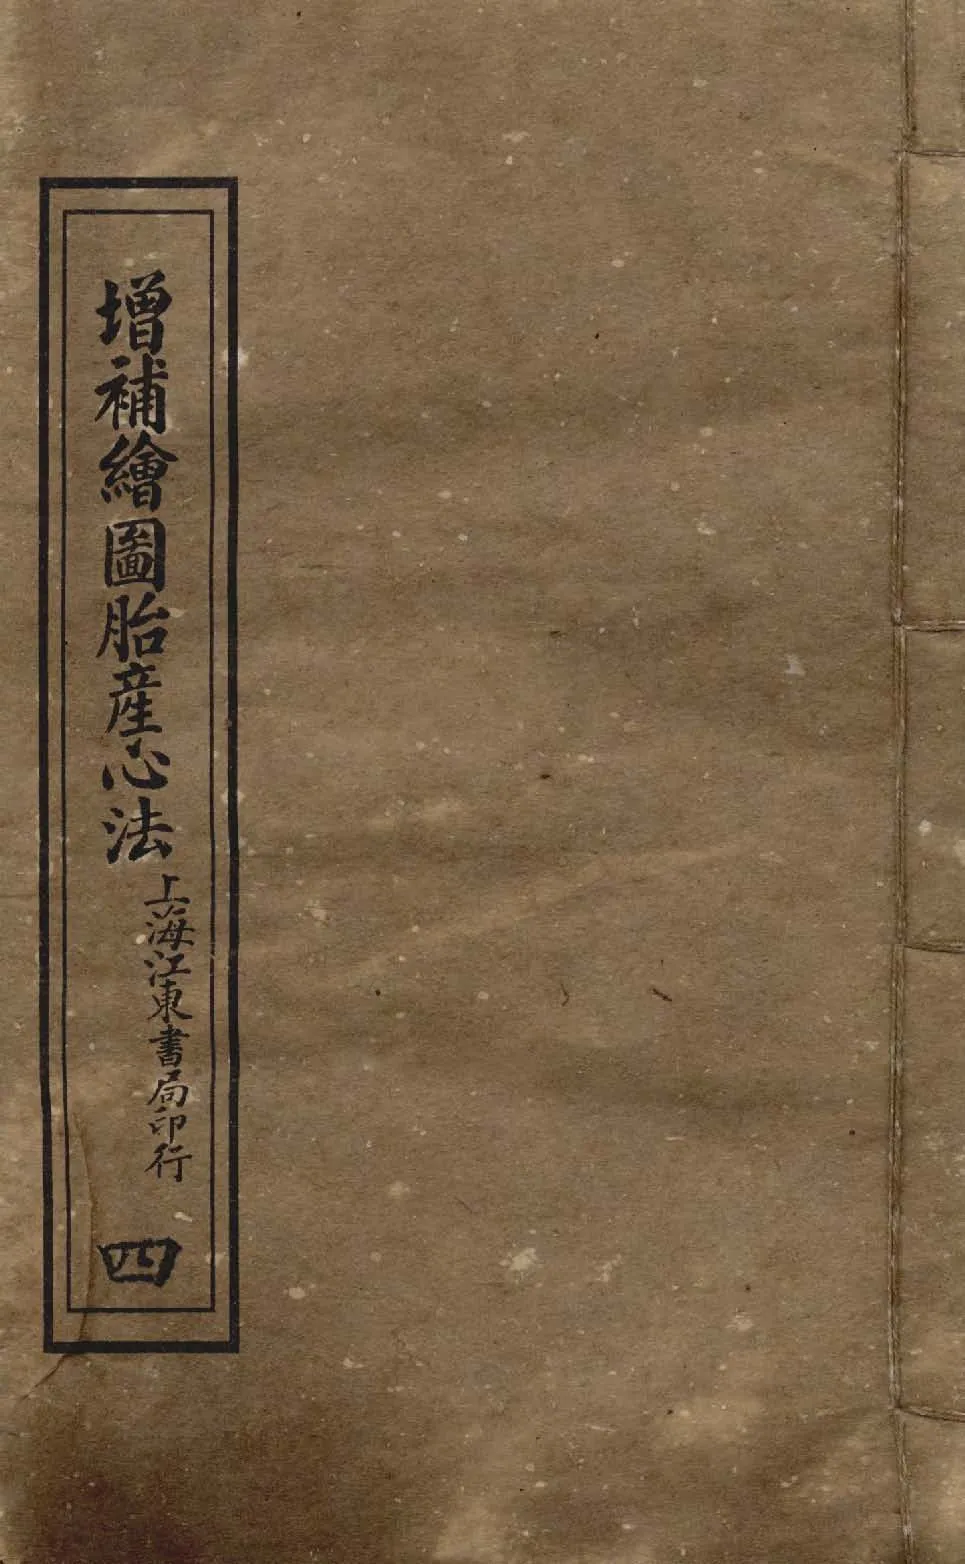 增補繪圖胎產心法
上海江東書局印行
四